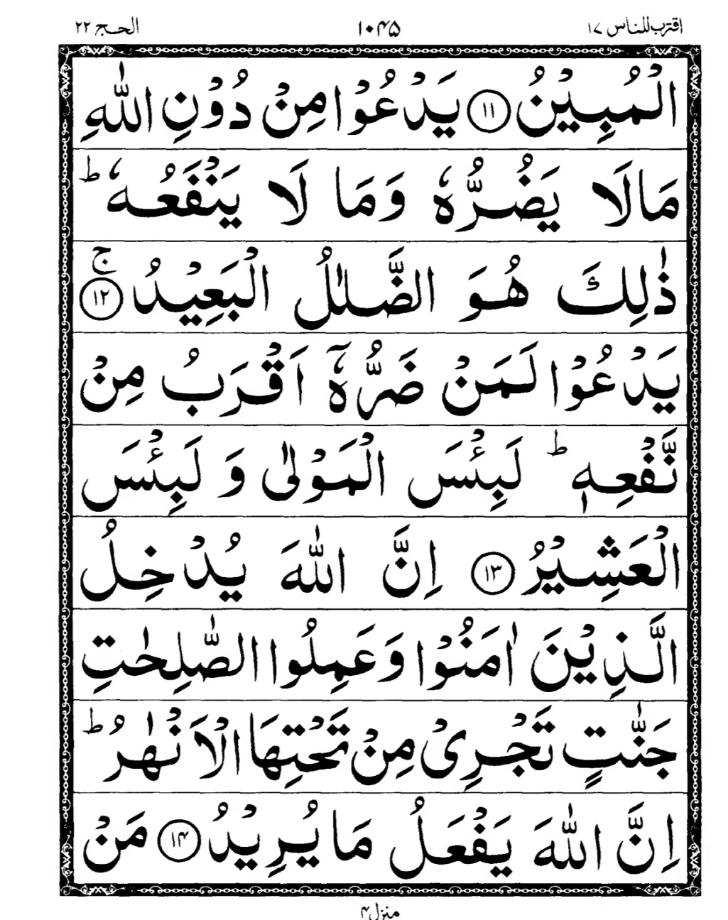 اقترب للناس ١٧ ١٠۴۵ الحج ٢٢
الْمُبِيْنُ ﴿١١﴾ يَدْعُوْا مِنْ دُوْنِ اللّٰهِ
مَا لَا يَضُرُّهٗ وَمَا لَا يَنْفَعُهٗ ؕ
ذٰلِكَ هُوَ الضَّلٰلُ الْبَعِيْدُ ۚ ﴿١٢﴾
يَدْعُوْا لَمَنْ ضَرُّهٗۤ اَقْرَبُ مِنْ
نَّفْعِهٖ ؕ لَبِئْسَ الْمَوْلٰى وَ لَبِئْسَ
الْعَشِيْرُ ﴿١٣﴾ اِنَّ اللّٰهَ يُدْخِلُ
الَّذِيْنَ اٰمَنُوْا وَعَمِلُوا الصّٰلِحٰتِ
جَنّٰتٍ تَجْرِىْ مِنْ تَحْتِهَا الْاَنْهٰرُ ؕ
اِنَّ اللّٰهَ يَفْعَلُ مَا يُرِيْدُ ﴿١۴﴾ مَنْ
منزل ۴